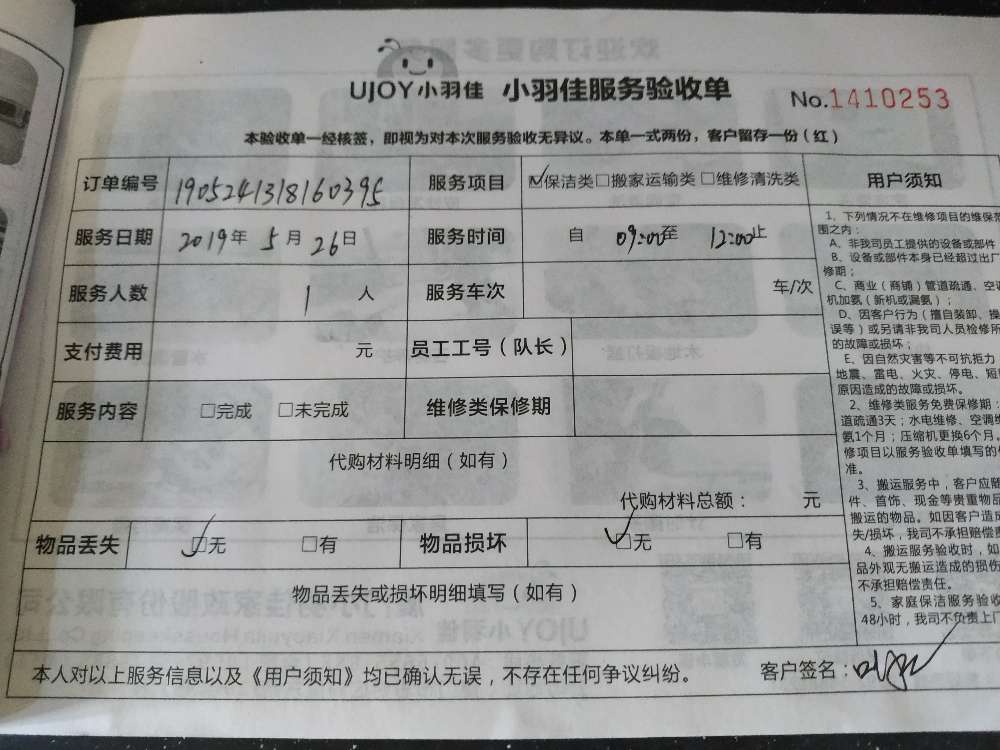 UJOY小羽佳 小羽佳服务验收单 No.1410253
本验收单一经核签，即视为对本次服务验收无异议。本单一式两份，客户留存一份（红）
订单编号 1905241318160395 服务项目 ☑保洁类□搬家运输类□维修清洗类
服务日期 2019年 5月 26日 服务时间 自 09:00至 12:00止
服务人数 1 人 服务车次 车/次
支付费用 元 员工工号（队长）
服务内容 □完成 □未完成 维修类保修期
代购材料明细（如有）
代购材料总额： 元
物品丢失 ☑无 □有 物品损坏 ☑无 □有
物品丢失或损坏明细填写（如有）
本人对以上服务信息以及《用户须知》均已确认无误，不存在任何争议纠纷。 客户签名：
用户须知
1、下列情况不在维修项目的维保范
围之内：
A、非我司员工提供的设备或部件
B、设备或部件本身已经超过出厂
修期；
C、商业（商铺）管道疏通、空调
机加氨（新机或漏氨）；
D、因客户行为（擅自装卸、操
误等）或另请非我司人员检修所
的故障或损坏；
E、因自然灾害等不可抗拒力
地震、雷电、火灾、停电、短
原因造成的故障或损坏。
2、维修类服务免费保修期：
道疏通3天；水电维修、空调
氨1个月；压缩机更换6个月。
修项目以服务验收单填写的
准。
3、搬运服务中，客户应
件、首饰、现金等贵重物品
搬运的物品。如因客户造成
失/损坏，我司不承担赔偿责
4、搬运服务验收时，如
品外观无搬运造成的损伤
不承担赔偿责任。
5、家庭保洁服务验收
48小时，我司不负责上门